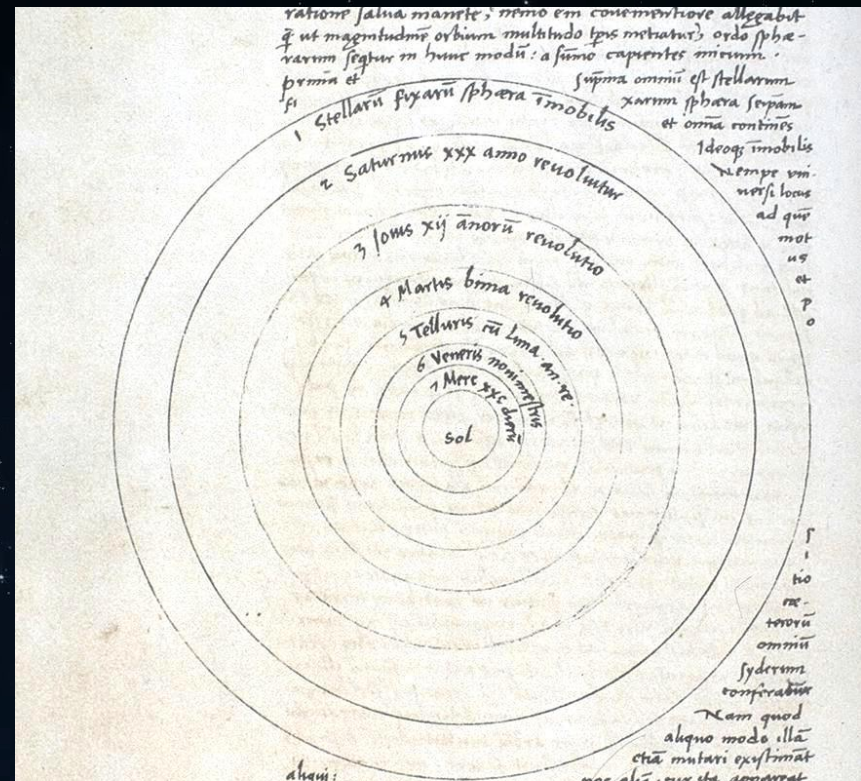 ratione salua manēte, nemo em̄ conuenientiore allegabit
q̄ ut magnitudinē orbium multitudo tp̄is metiatur, ordo sphæ-
rarum seqtur in hunc modū: a sūmo capientes inicium.
prima et suprīma omniū est stellarum
fi xarum sphæra seipam
et omīa continēs
Ideoq, īmobilis
Nempe vni-
uersi locus
ad quē
mot
us
et
p
o
1 Stellarū fixarū sphæra īmobilis
2 Saturnus xxx anno reuoluitur
3 Iouis xij ānorū reuolutio
4 Martis bima reuolutio
5 Telluris cū Luna. an. re.
6 Veneris nonimestris
7 Merc xxc dierū
Sol
s
i
tio
cæ-
terorū
omniū
syderum
conferatur
Nam quod
aliquo modo illā
etiā mutari existimāt
aliqui: